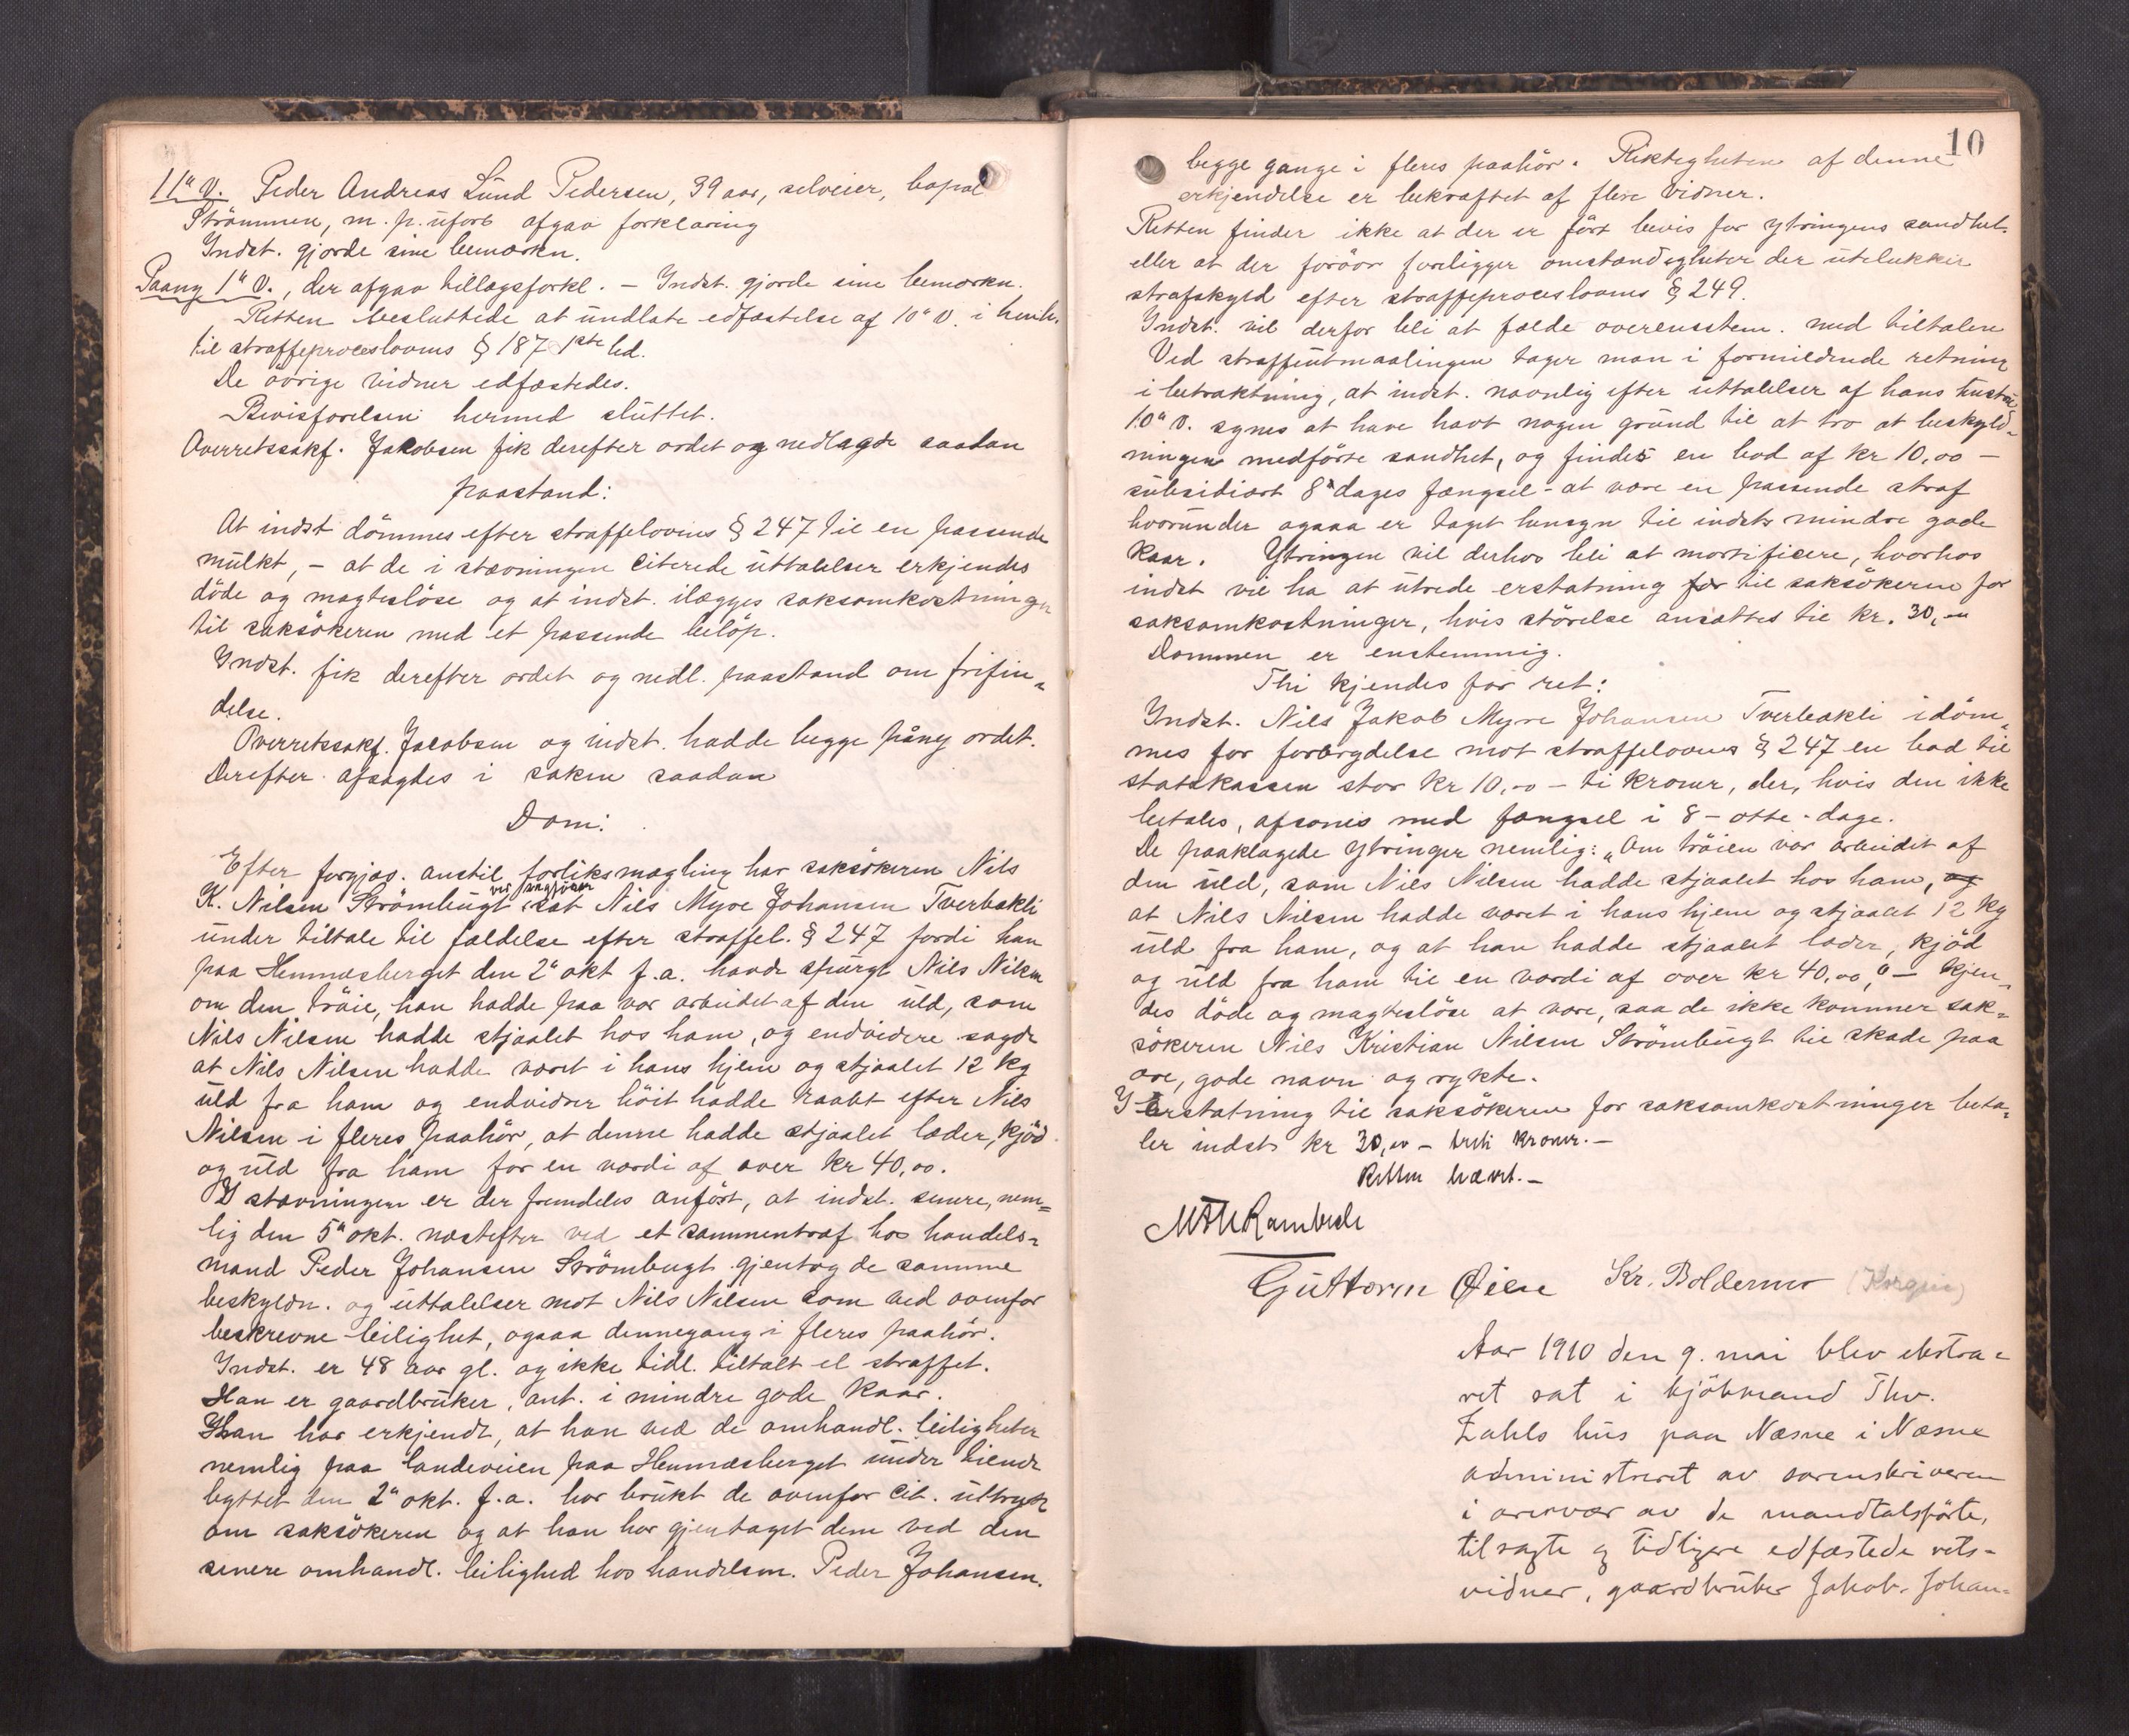 11" V. Peder Andreas Lund Pedersen, 39 aar, selveier, bopæl
Strømmen, m. p. uforb afgav forklaring
Indst. gjorde sine bemærkn.
Paany 1" V., der afgav tillægsforkl. – Indst. gjorde sine bemærkn.
Retten besluttede at undlate edfæstelse af 10" V. i henh.
til straffeproceslovens § 187 1ste led.
De øvrige vidner edfæstedes.
Bevisførelsen hermed sluttet.
Overretssakf. Jakobsen fik derefter ordet og nedlagde saadan
paastand:
At indst dömmes efter straffelovens § 247 til en passende
mulkt, – at de i stævningen citerede uttalelser erkjendes
döde og magteslöse og at indst. ilægges saksomkostninger
til saksökeren med et passende belöp.
Indst. fik derefter ordet og nedl. paastand om frifin-
delse.
Overretssakf. Jacobsen og indst. hadde begge påny ordet.
Derefter afsagdes i saken saadan
Dom:
Efter forgjæv. anstil. forliksmægling har saksökeren Nils
K. Nilsen Strömbugt sat Nils Myre Johansen Tverbakli
under tiltale til fældelse efter straffel. § 247 fordi han
paa Hemnæsberget den 2" okt f.a. havde spurgt Nils Nilsen
om den tröie, han hadde paa var arbeidet af den uld, som
Nils Nilsen hadde stjaalet hos ham, og endvidere sagde
at Nils Nilsen hadde været i hans hjem og stjaalet 12 kg
uld fra ham og endvidere höit hadde raabt efter Nils
Nilsen i fleres paahör, at denne hadde stjaalet læder, kjöd
og uld fra ham for en værdi af over kr 40,00.
I stævningen er der fremdeles anfört, at indst. senere, nem=
lig den 5" okt. næstefter ved et sammentræf hos handels=
mand Peder Johansen Strömbugt gjentog de samme
beskyldn. og uttalelser mot Nils Nilsen som ved ovenfor
beskrevne leilighet, ogsaa dennegang i fleres paahör.
Indst. er 48 aar gl. og ikke tidl. tiltalt el straffet.
Han er gaardbruker, ant. i mindre gode kaar.
Han har erkjendt, at han ved de omhandl. leiligheter
nemlig paa landeveien paa Hemnæsberget under tiende
byttet den 2" okt. f.a. har brukt de ovenfor cit. uttryk
om saksökeren og at han har gjentaget dem ved den
senere omhandl. leilighed hos handelsm. Peder Johansen.
10
begge gange i fleres paahör. Riktigheten af denne
erkjendelse er bekræftet af flere vidner.
Retten finder ikke at der er fört bevis for ytringens sandhet.
eller at der forövr foreligger omstændigheter der utelukker
strafskyld efter straffeproceslovens § 249.
Indst. vil derfor bli at fælde overensstem. med tiltalen
Ved straffeutmaalingen tager man i formildende retning
i betraktning, at indst. navnlig efter uttalelser af hans hustru
10" V. synes at have havt nogen grund til at tro at beskyld-
ningen medförte sandhet, og findes en bod af kr 10,00 –
subsidiært 8 dages fængsel – at være en passende straf
hvorunder ogsaa er taget hensyn til indsts mindre gode
kaar. Ytringen vil derhos bli at mortificere, hvorhos
indst vil ha at utrede erstatning for til saksökeren for
saksomkostninger, hvis störelse ansættes til kr. 30,00
Dommen er enstemmig.
Thi kjendes for ret:
Indst. Nils Jakob Myre Johansen Tverbakli idöm-
mes for forbrydelse mot straffelovens § 247 en bod til
statskassen stor kr 10,00 – ti kroner, der, hvis den ikke
betales, afsones med fængsel i 8 – otte – dage.
De paaklagede ytringer nemlig: „Om tröien var arbeidet af
den uld, som Nils Nilsen hadde stjaalet hos ham, og
at Nils Nilsen hadde været i hans hjem og stjaalet 12 kg
uld fra ham, og at han hadde stjaalet læder, kjöd
og uld fra ham til en værdi af over kr 40,00," – kjen-
des döde og magteslöse at være, saa de ikke kommer sak=
sökeren Nils Kristian Nilsen Strömbugt til skade paa
ære, gode navn og rykte.
I Erstatning til saksökeren for saksomkostninger beta=
ler indst kr 30,00 – treti kroner. –
Retten hævet. –
Guttorm Øien Kr. Boldermo (Korgen)
Aar 1910 den 9. mai blev ekstra=
ret sat i kjöbmand Thv.
Zahls hus paa Næsne i Næsne
administreret av sorenskriveren
i overvær av de mandtalsførte,
tilsagte og tidligere edfæstede rets-
vidner, gaardbruker Jakob Johan=